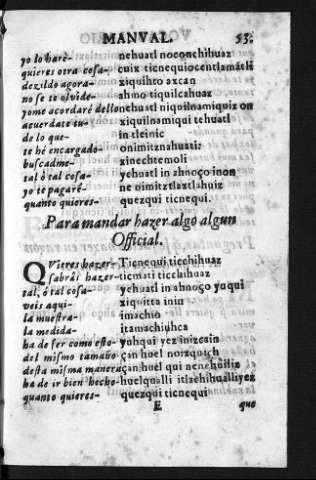 MANVAL. 53.
yo lo harè- nehuatl noconchihuaz
quieres otra cosa- cuix ticnequiocentlamãtli
dezildo agora- xiquilhto axcan
no se te olvide- ahmo tiquilcahuaz
yome acordarè dello nehuatl niquilnamiquiz on
acuerdate tu- xiquilnamiqui tehuatl
de lo que- in tleinic
te hé encargado- onimitznahuati:
buscadme- xinechtemoli
tal ò tal cosa- yehuatl in ahnoço inon
yo te pagarè- ne nimitztlaxtlahuiz
quanto quieres- quezqui ticnequi.
Para mandar hazer algo algun
Official.
QVieres hazer- Ticnequi ticchihuaz
sabràs hazer- ticmati ticchihuaz
tal, ò tal cosa- yehuatl in ahnoço yuqui
veis aqui- xiquitta inin
la muestra- imachio
la medida- itamachiuhca
ha de ser como esto- yuhqui yez inizcain
del mismo tamaño- çan huel noizquich
desta misma manera çan huel qui nenehuiliz
ha de ir bien hecho- huelqualli itlachihualliyez
quanto quieres- quezqui ticnequi
E que